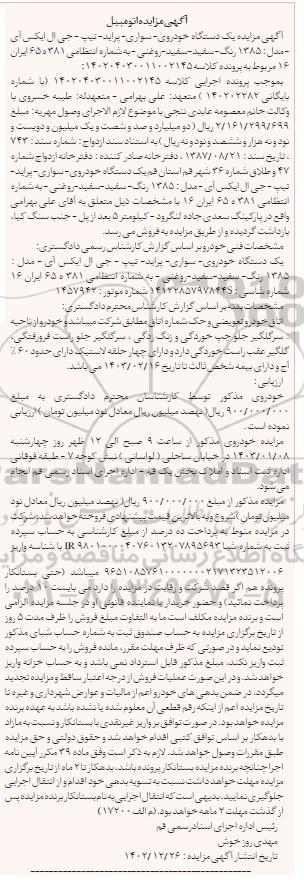 آگهی مزایده اتومبیل
آگهی مزایده یک دستگاه خودروی- سواری- پراید- تیپ - جی ال ایکس آی
- مدل: ۱۳۸۵ رنگ- سفید- سفید- روغنی - به شماره انتظامی ۳۸۱ ه ۶۵ ایران
۱۶ مربوط به پرونده کلاسه ۱۴۰۲۰۴۰۳۰۰۱۱۰۰۲۱۴۵:
بموجب پرونده اجرایی کلاسه ۱۴۰۲۰۴۰۳۰۰۱۱۰۰۲۱۴۵ (با شماره
بایگانی ۱۴۰۲۰۲۲۸۲ ) متعهد: علی بهرامی - متعهدله: طیبه خسروی با
وکالت خانم معصومه عابدی نتجی با موضوع لازم الاجرای وصول مهریه: مبلغ
۲/۱۶۱/۲۹۹/۶۹۹ ریال (دو میلیارد و صد و شصت و یک میلیون و دویست و
نود و نه هزار و ششصد و نود و نه ریال) به استناد سند ازدواج : شماره سند: ۷۴۳
، تاریخ سند: ۱۳۸۷/۰۸/۲۱ ، دفترخانه صادر کننده : دفترخانه ازدواج شماره
۴۷ و طلاق شماره ۳۶ شهر قم استان قم یک دستگاه خودروی- سواری- پراید-
تیپ - جی ال ایکس آی - مدل: ۱۳۸۵ رنگ- سفید- سفید- روغنی - به شماره
انتظامی ۳۸۱ ه ۶۵ ایران ۱۶ با مشخصات ذیل متعلق به آقای علی بهرامی
واقع در پارکینگ سعدی جاده لنگرود - کیلومتر ۵ بعد از پل - جنب سنگ کیا،
بازداشت گردیده و از طریق مزایده به فروش می رسد.
مشخصات فنی خودرو بر اساس گزارش کارشناس رسمی دادگستری:
یک دستگاه خودروی- سواری- پراید- تیپ - جی ال ایکس آی - مدل :
۱۳۸۵ رنگ- سفید- سفید- روغنی - به شماره انتظامی ۳۸۱ ه ۶۵ ایران ۱۶
شماره شاسی: شماره موتور:
مشخصات بدنه بر اساس گزارش کارشناس محترم دادگستری:
اتاق خودرو تعویضی و حک شماره اتاق مطابق شرکت میباشد و خودرو از ناحیه
: سرگلگیر جلو چپ خوردگی و زنگ زدگی ، سرگلگیر جلو راست فرورفتگی،
گلگیر عقب راست خوردگی دارد و دارای چهار حلقه لاستیک دارای حدود ۶۰ ٪
آج و دارای بیمه شخص ثالث تا تاریخ ۱۴۰۳/۰۲/۱۶ می باشد.
ارزیابی:
خودروی مذکور توسط کارشناسان محترم دادگستری به مبلغ
۹۰۰/۰۰۰/۰۰۰ ریال (نهصد میلیون ریال معادل نود میلیون تومان ) ارزیابی
نموده است .
مزایده خودروی مذکور از ساعت ۹ صبح الی ۱۲ ظهر روز چهارشنبه
۱۴۰۳/۰۱/۰۸ در خیابان ساحلی (لواسانی ) نبش کوچه ۷ - طبقه فوقانی
اداره ثبت اسناد و املاک بخش یک قم - اداره اجرای اسناد رسمی قم انجام
می شود.
مزایده مذکور از مبلغ ۹۰۰/۰۰۰/۰۰۰ ریال (نهصد میلیون ریال معادل نود
میلیون تومان) شروع و به بالاترین قیمت پیشنهادی فروخته خواهد شد. شرکت
در مزایده منوط به پرداخت ده درصد از مبلغ کارشناسی به حساب سپرده
ثبت به شماره شبا با شناسه واریز
میباشد (حتی بستانکار
پرونده هم اگر قصد شرکت و رقابت در مزایده را دارد می بایست ۱۰ درصد را
پرداخت نمائید) و حضور خریدار یا نماینده قانونی او در جلسه مزایده الزامی
است و برنده مزایده مکلف است ما به التفاوت مبلغ فروش را ظرف مدت ۵ روز
از تاریخ برگزاری مزایده به حساب صندوق ثبت به شماره حساب شبای مذکور
تودیع نماید و در صورتی که ظرف مهلت مقرر، مانده فروش را به حساب سپرده
ثبت واریز نکند، مبلغ مذکور قابل استرداد نمی باشد و به حساب خزانه واریز
خواهد شد. و در این صورت عملیات فروش از درجه اعتبار ساقط و مزایده تجدید
میگردد. در ضمن بدهی های خودرو اعم از مالیات و عوارض شهرداری و غیره تا
تاریخ مزایده اعم از اینکه رقم قطعی آن معلوم شده یا نشده باشد به عهده برنده
مزایده خواهد بود. در صورت توافق بر واریز غیرنقدی با بستانکار و نسبت به مازاد
با بدهکار بر اساس توافق کتبی اقدام خواهد شد و حقوق دولتی و حق مزایده
طبق مقررات وصول خواهد شد. لازم به ذکر است وفق ماده ۳۹ مکرر آیین نامه
اجرا چنانچه برنده مزایده بستانکار پرونده باشد، بدهکار تا ۲ ماه از تاریخ برگزاری
مزایده مهلت خواهد داشت نسبت به تسویه بدهی خود اقدام و از انتقال اجرایی
جلوگیری نمایید، بدیهی است که انتقال اجرایی به نام بستانکار برنده مزایده پس
از گذشت مهلت ۲ ماهه خواهد بود. (م الف ۱۷۲۰۰)
رئیس اداره اجرای اسناد رسمی قم
مهدی روز خوش
تاریخ انتشار آگهی مزایده : ۱۴۰۲/۱۲/۲۶